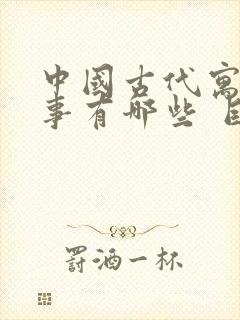 中國古代寓
事有哪些
罰酒一杯